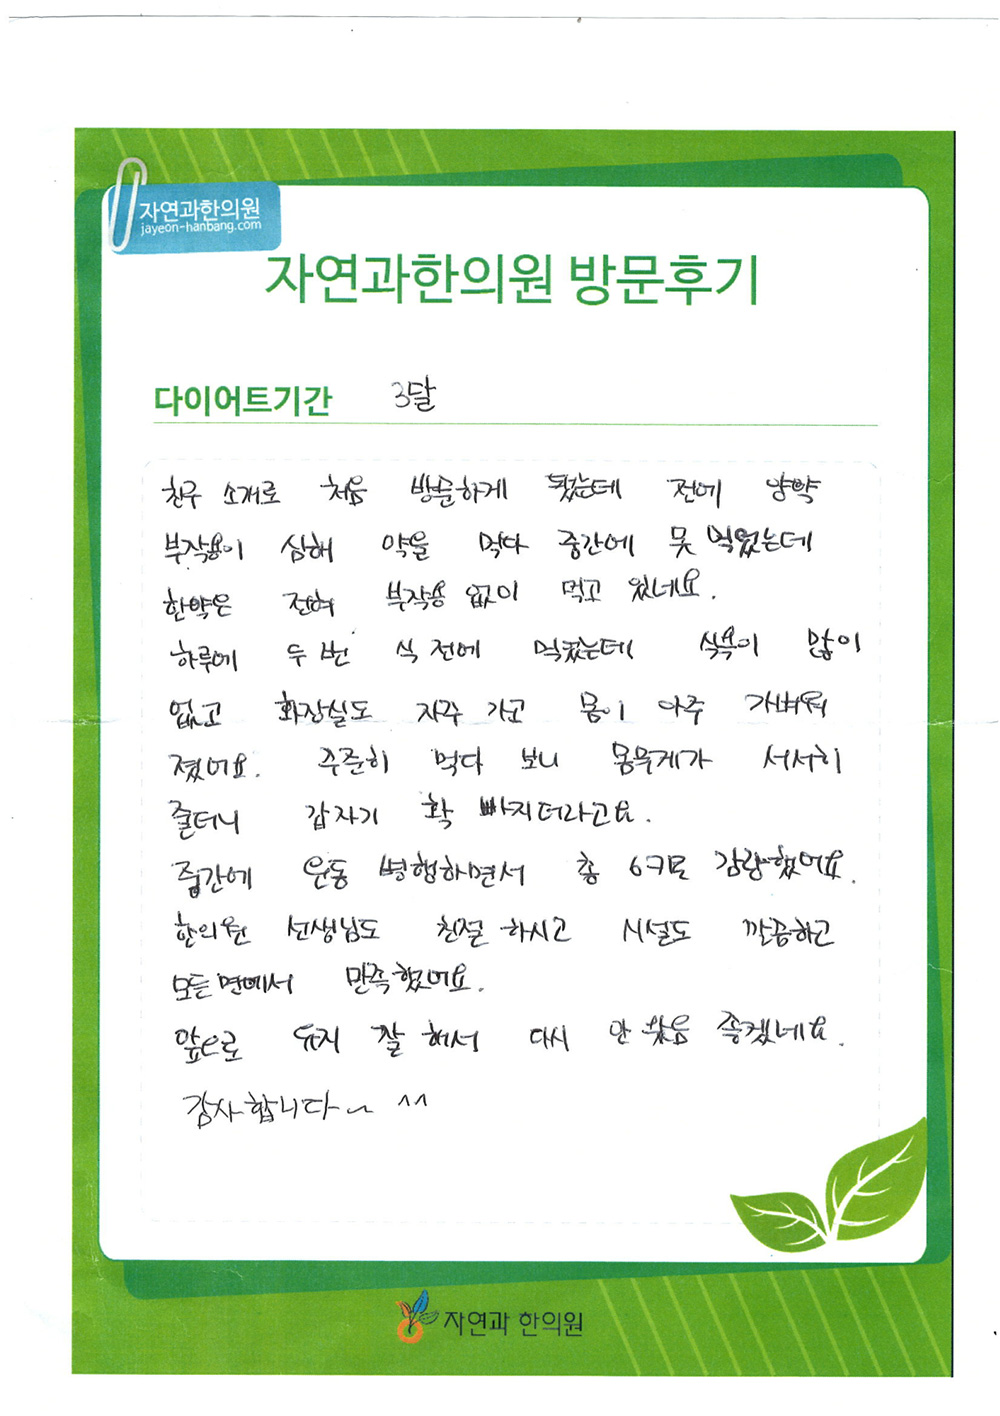 자연과한의원
jayeon-hanbang.com
자연과한의원 방문후기
다이어트기간 3달
친구 소개로 처음 방문하게 됐는데 전에 양약
부작용이 심해 약을 먹다 중간에 못 먹었는데
한약은 전혀 부작용 없이 먹고 있네요.
하루에 두번 식전에 먹었는데 식욕이 많이
없고 화장실도 자주 가고 몸이 아주 가벼워
졌어요. 꾸준히 먹다 보니 몸무게가 서서히
줄더니 갑자기 확 빠지더라고요.
중간에 운동 병행하면서 총 6키로 감량했어요.
한의원 선생님도 친절하시고 시설도 깔끔하고
모든면에서 만족했어요.
앞으로 유지 잘 해서 다시 안 왔음 좋겠네요.
감사합니다~ ^^
자연과 한의원